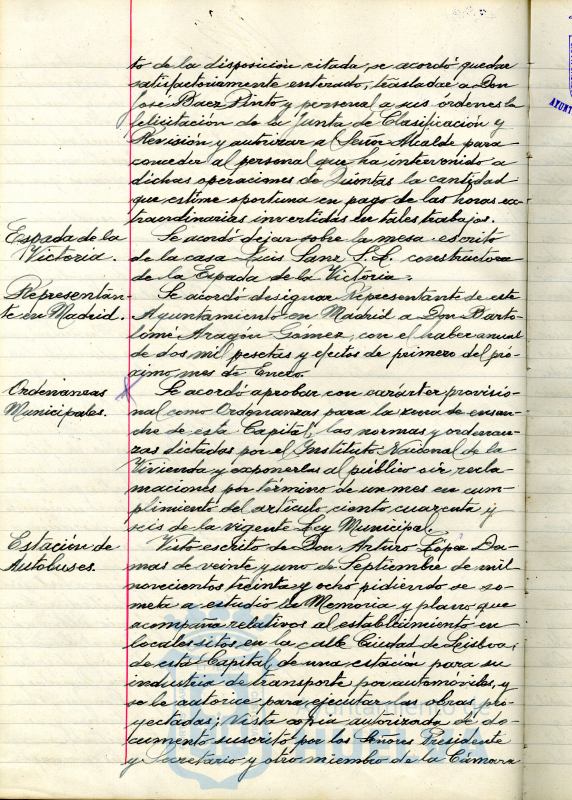 to de la disposición citada, se acordó quedar
satisfactoriamente enterado, trasladar a Don
José Baer Pinto y personal a sus órdenes la
felicitación de la Junta de Clasificación y
Revisión y autorizar al Señor Alcalde para
conceder al personal que ha intervenido a
dichas operaciones de Quintas la cantidad
que estime oportuna en pago de las horas ex-
traordinarias invertidas en tales trabajos.
Espada de la
Victoria.
Se acordó dejar sobre la mesa escrito
de la casa Luis Sanz S.L. constructora
de la Espada de la Victoria.
Representan-
te en Madrid.
Se acordó designar Representante de este
Ayuntamiento en Madrid a Don Barto-
lomé Aragón Gómez, con el haber anual
de dos mil pesetas y efectos de primero del pró-
ximo mes de Enero.
Ordenanzas
Municipales.
Se acordó aprobar con carácter provisio-
nal como Ordenanzas para la zona de ensan-
che de esta Capital, las normas y ordenan-
zas dictadas por el Instituto Nacional de la
Vivienda y exponerlas al público oir recla-
maciones por término de un mes en cum-
plimiento del artículo ciento cuarenta y
seis de la vigente Ley Municipal.
Estación de
Autobuses.
Visto escrito de Don Arturo López Da-
mas de veinte y uno de Septiembre de mil
novecientos treinta y ocho pidiendo se so-
meta a estudio la Memoria y plano que
acompaña relativos al establecimiento en
locales sitos en la calle Ciudad de Lisboa,
de esta Capital, de una estación para su
industria de transporte por automóviles, y
se le autorice para ejecutar las obras pro-
yectadas; Vista copia autorizada de do-
cumento suscrito por los Señores Presidente
y Secretario y otro miembro de la Cámara
Ayuntamiento de
HUELVA
AYUNT